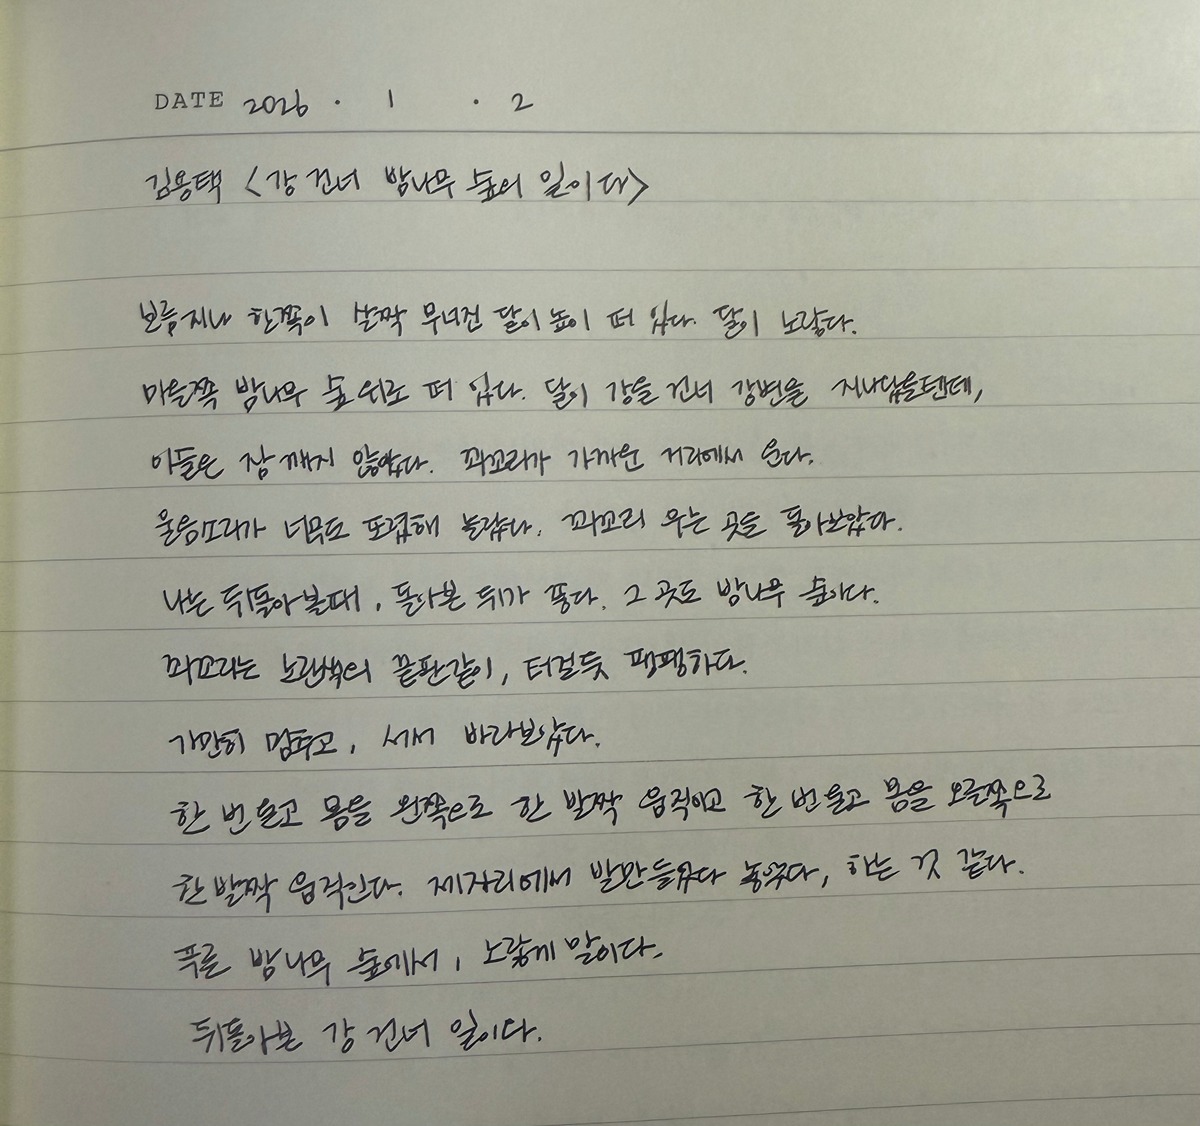 DATE 2026 . 1 . 2
김용택 <강 건너 밤나무 숲의 일이다>
보름지나 한쪽이 살짝 무너진 달이 높이 떠 있다. 달이 노랗다.
마을쪽 밤나무 숲 위로 떠 있다. 달이 강을 건너 강변을 지나갔을텐데,
아들은 잠 깨지 않았다. 꾀꼬리가 가까운 거리에서 운다.
울음소리가 너무도 또렷해 놀랐다. 꾀꼬리 우는 곳을 돌아보았다.
나는 뒤돌아볼때, 돌아본 뒤가 좋다. 그 곳도 밤나무 숲이다.
꾀꼬리는 노란색의 끝판같이, 터질듯 팽팽하다.
가만히 멈추고, 서서 바라보았다.
한 번 울고 몸을 왼쪽으로 한 발짝 움직이고 한 번 울고 몸을 오른쪽으로
한 발짝 움직인다. 제자리에서 발만 들었다 놓았다, 하는 것 같다.
푸른 밤나무 숲에서, 노랗게 말이다.
뒤돌아본 강 건너 일이다.